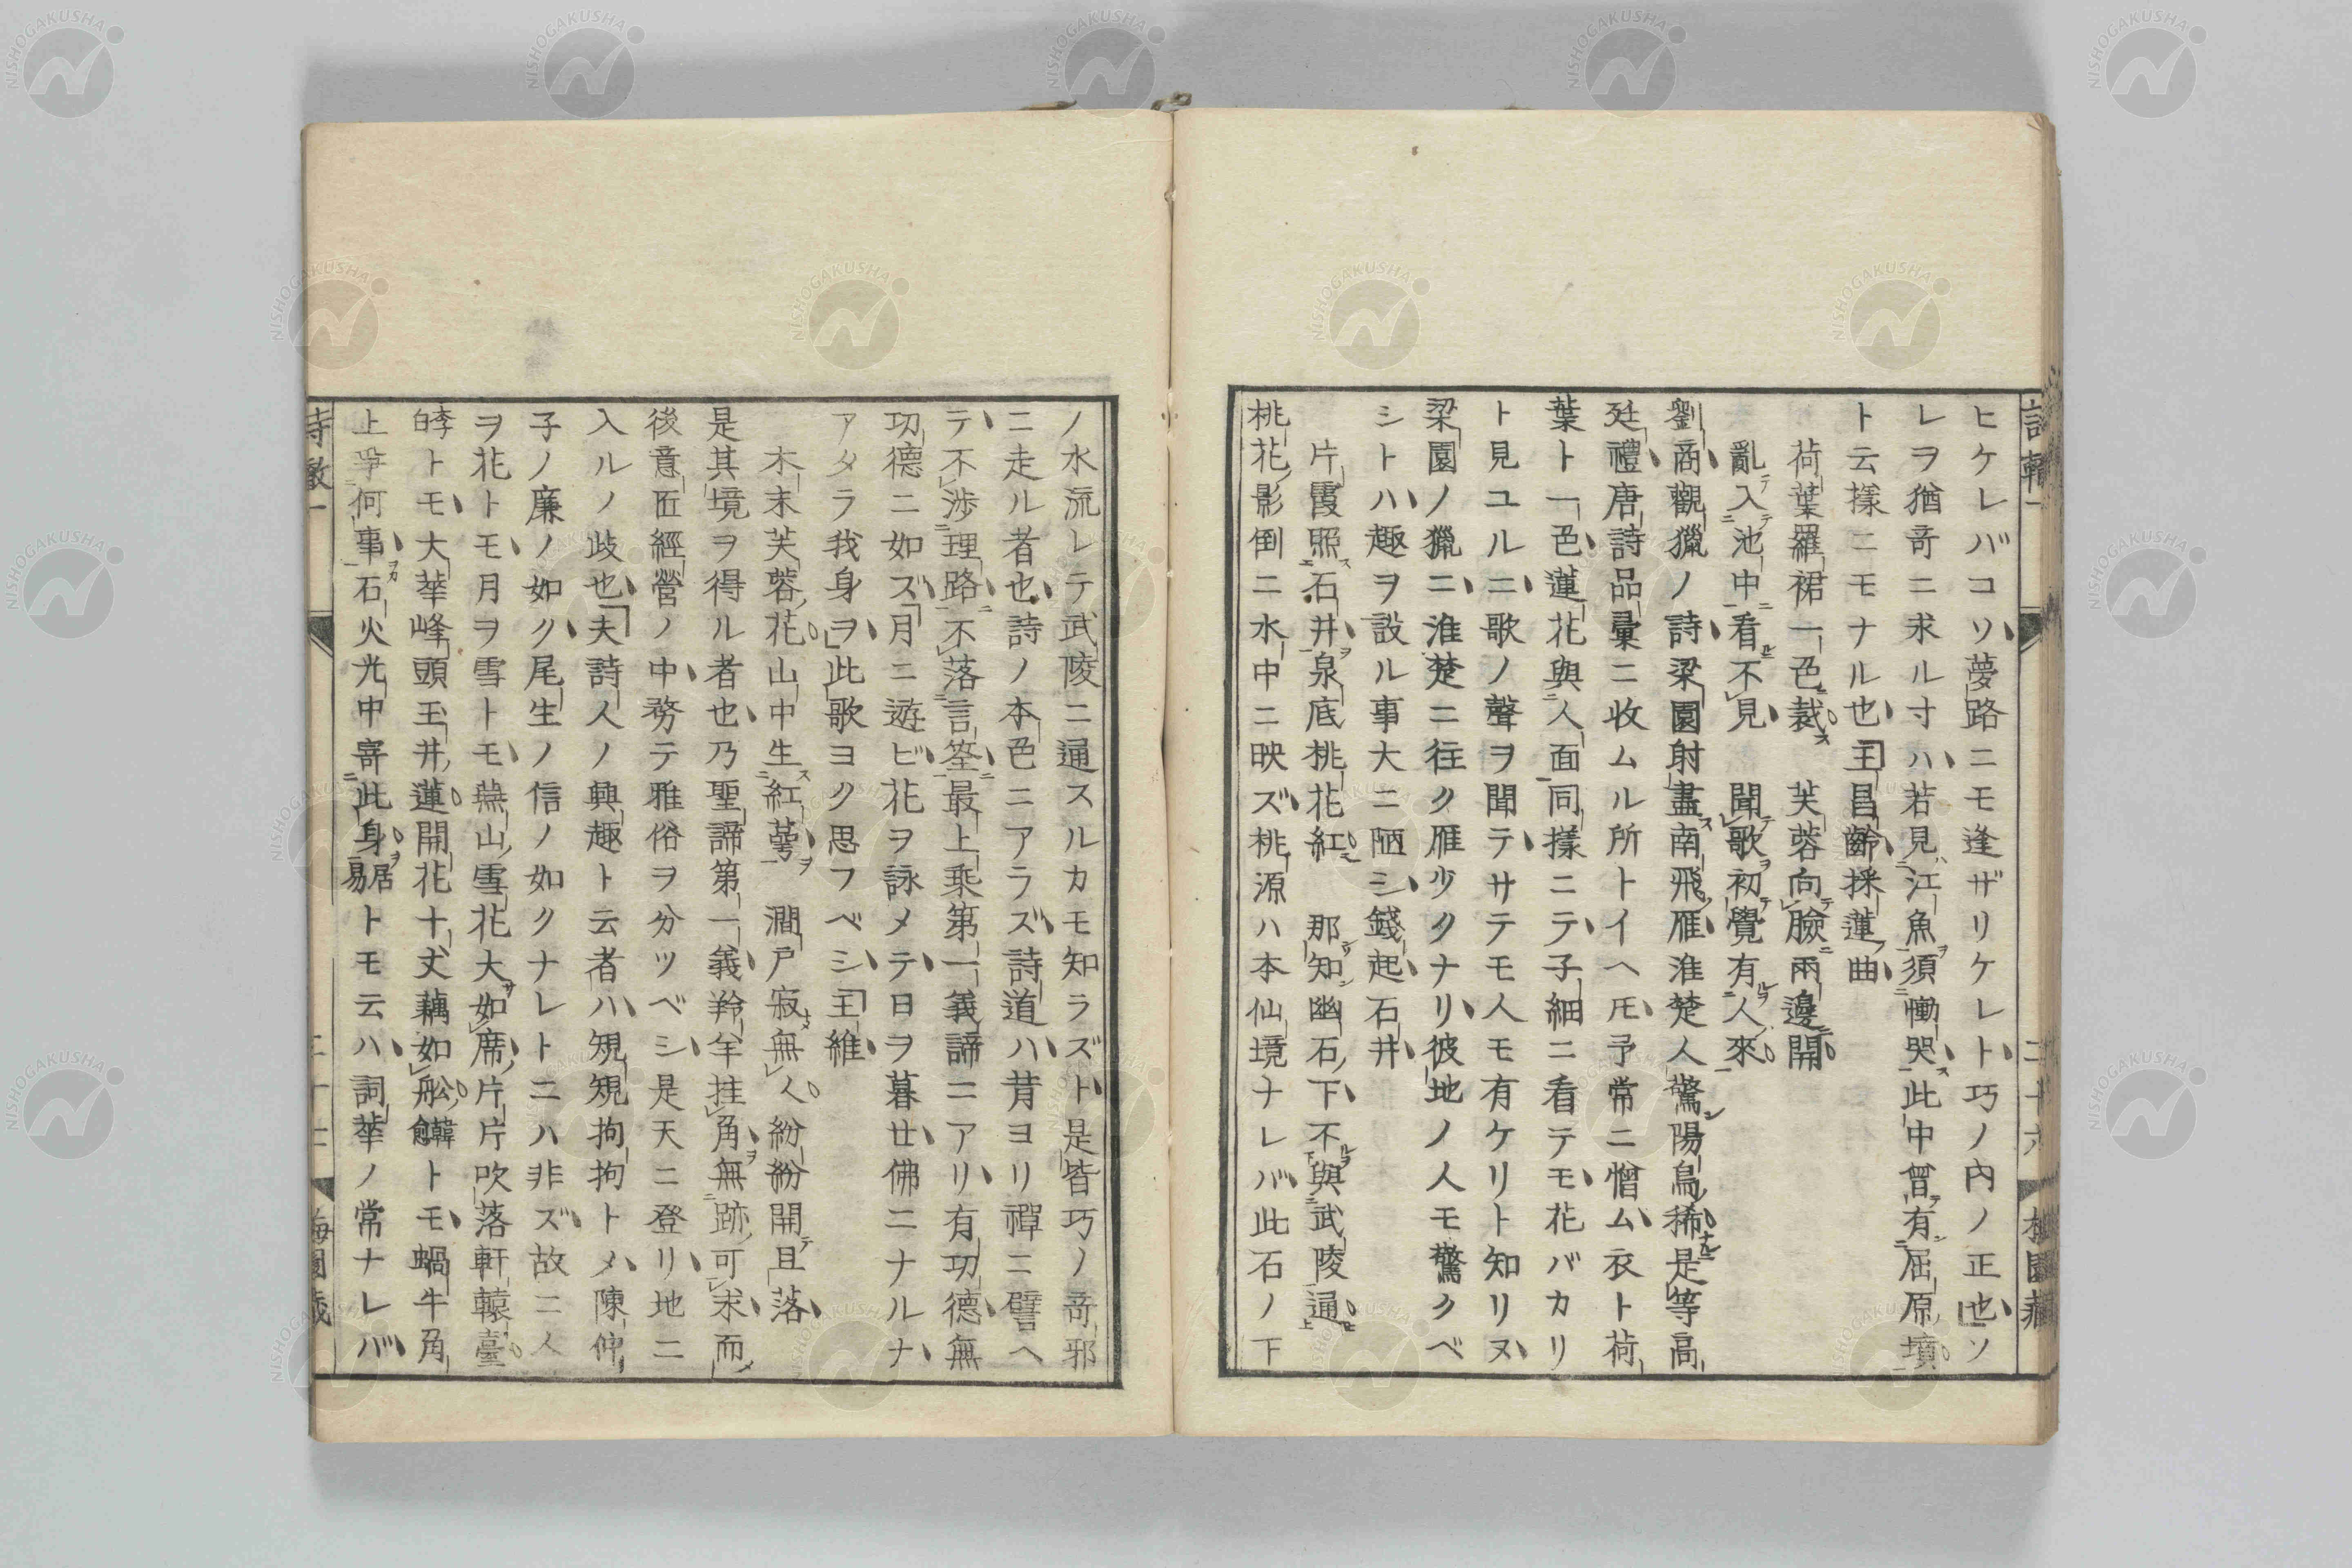 ヒケレバコソ夢路ニモ逢ザリケレト巧ノ内ノ正也ソ
レヲ猶奇ニ求ル寸ハ若見江魚須慟哭此中曾有屈原墳
ト云樣ニモナル也王昌齡採蓮曲
荷葉羅裙一色裁　芙蓉向臉兩邊開
亂入池中看不見　聞歌初覺有人來
劉商觀獵ノ詩梁園射盡南飛雁淮楚人驚陽鳥稀是等高
廷禮唐詩品彙ニ收ムル所トイヘ𪜈予常ニ憎ム衣ト荷
葉ト一色蓮花與人面同樣ニテ子細ニ看テモ花バカリ
ト見ユルニ歌ノ聲ヲ聞テサテモ人モ有ケリト知リヌ
梁園ノ獵ニ淮楚ニ往ク雁少クナリ彼地ノ人モ驚クベ
シトハ趣ヲ設ル事大ニ陋シ錢起石井
片霞照石井泉底桃花紅　那知幽石下不與武陵通
桃花影倒ニ水中ニ映ズ桃源ハ本仙境ナレバ此石ノ下
ノ水流レテ武陵ニ通スルカモ知ラズト是皆巧ノ奇邪
ニ走ル者也詩ノ本色ニアラズ詩道ハ昔ヨリ禪ニ譬ヘ
テ不涉理路不落言筌最上乘第一義諦ニアリ有功德無
功德ニ如ズ月ニ遊ビ花ヲ詠メテ日ヲ暮廿佛ニナルナ
アタラ我身ヲ此歌ヨク思フベシ王維
木末芙蓉花山中生紅萼　澗戶寂無人紛紛開且落
是其境ヲ得ル者也乃聖諦第一義羚羊挂角無跡可求而
後意匠經營ノ中務テ雅俗ヲ分ツベシ是天ニ登リ地ニ
入ルノ歧也夫詩人ノ興趣ト云者ハ規規拘拘トメ陳仲
子ノ廉ノ如ク尾生ノ信ノ如クナレトニハ非ズ故ニ人
ヲ花トモ月ヲ雪トモ燕山雪花大如席片片吹落軒轅臺
李白トモ大華峰頭玉井蓮開花十丈藕如船韓愈トモ蝸牛角
上爭何事石火光中寄此身居易トモ云ハ詞華ノ常ナレバ